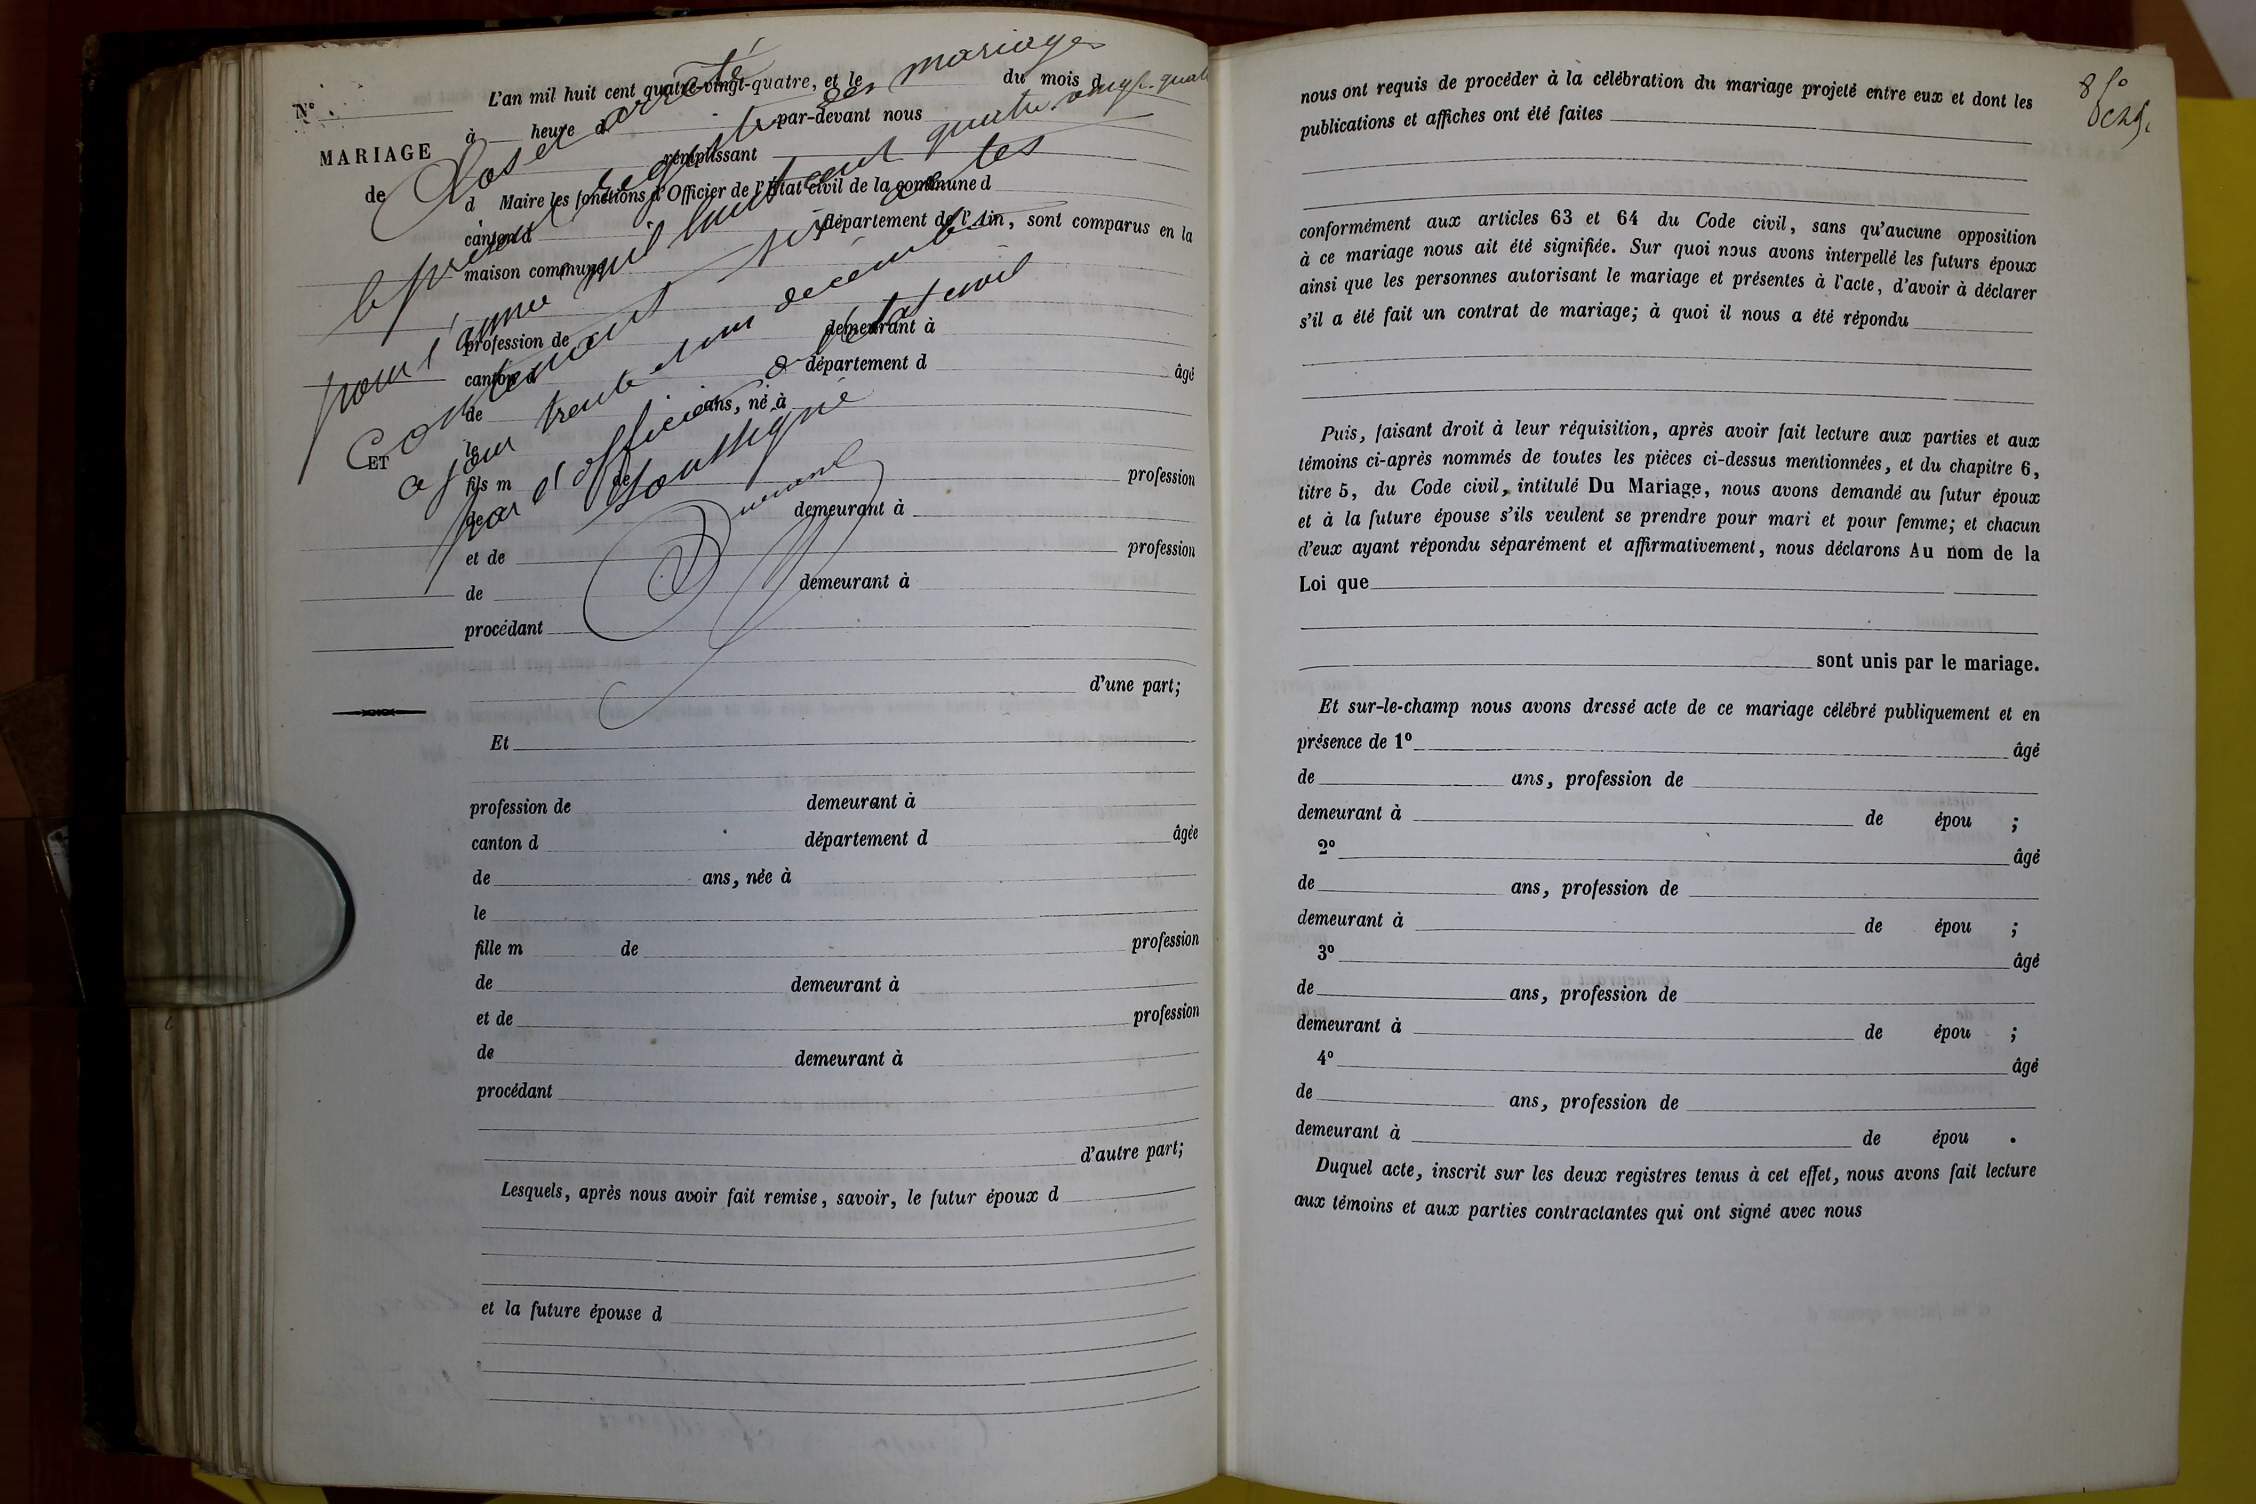 N°
MARIAGE
de
ET
L'an mil huit cent quatre-vingt-quatre, et le du mois d
à heure d par-devant nous
remplissant
d Maire les fonctions d'Officier de l'État civil de la commune d
canton d département de l'Ain, sont comparus en la
maison commune
profession de demeurant à
canton d département d âgé
de ans, né à
le
fils m de profession
de demeurant à
et de profession
de demeurant à
procédant
d'une part;
Clos et arrêté
le présent registre des mariages
pour l'année mil huit cent quatre vingt-quatre
contenant six actes
ce jour trente et un décembre
par l'officier de l'état civil
soussigné
Et
profession de demeurant à
canton d département d âgée
de ans, née à
le
fille m de profession
de demeurant à
et de profession
de demeurant à
procédant
d'autre part;
Lesquels, après nous avoir fait remise, savoir, le futur époux d
et la future épouse d
nous ont requis de procéder à la célébration du mariage projeté entre eux et dont les
publications et affiches ont été faites
conformément aux articles 63 et 64 du Code civil, sans qu'aucune opposition
à ce mariage nous ait été signifiée. Sur quoi nous avons interpellé les futurs époux
ainsi que les personnes autorisant le mariage et présentes à l'acte, d'avoir à déclarer
s'il a été fait un contrat de mariage; à quoi il nous a été répondu
Puis, faisant droit à leur réquisition, après avoir fait lecture aux parties et aux
témoins ci-après nommés de toutes les pièces ci-dessus mentionnées, et du chapitre 6,
titre 5, du Code civil, intitulé Du Mariage, nous avons demandé au futur époux
et à la future épouse s'ils veulent se prendre pour mari et pour femme; et chacun
d'eux ayant répondu séparément et affirmativement, nous déclarons Au nom de la
Loi que
sont unis par le mariage.
Et sur-le-champ nous avons dressé acte de ce mariage célébré publiquement et en
présence de 1° âgé
de ans, profession de
demeurant à de épou ;
2° âgé
de ans, profession de
demeurant à de épou ;
3° âgé
de ans, profession de
demeurant à de épou ;
4° âgé
de ans, profession de
demeurant à de épou .
Duquel acte, inscrit sur les deux registres tenus à cet effet, nous avons fait lecture
aux témoins et aux parties contractantes qui ont signé avec nous